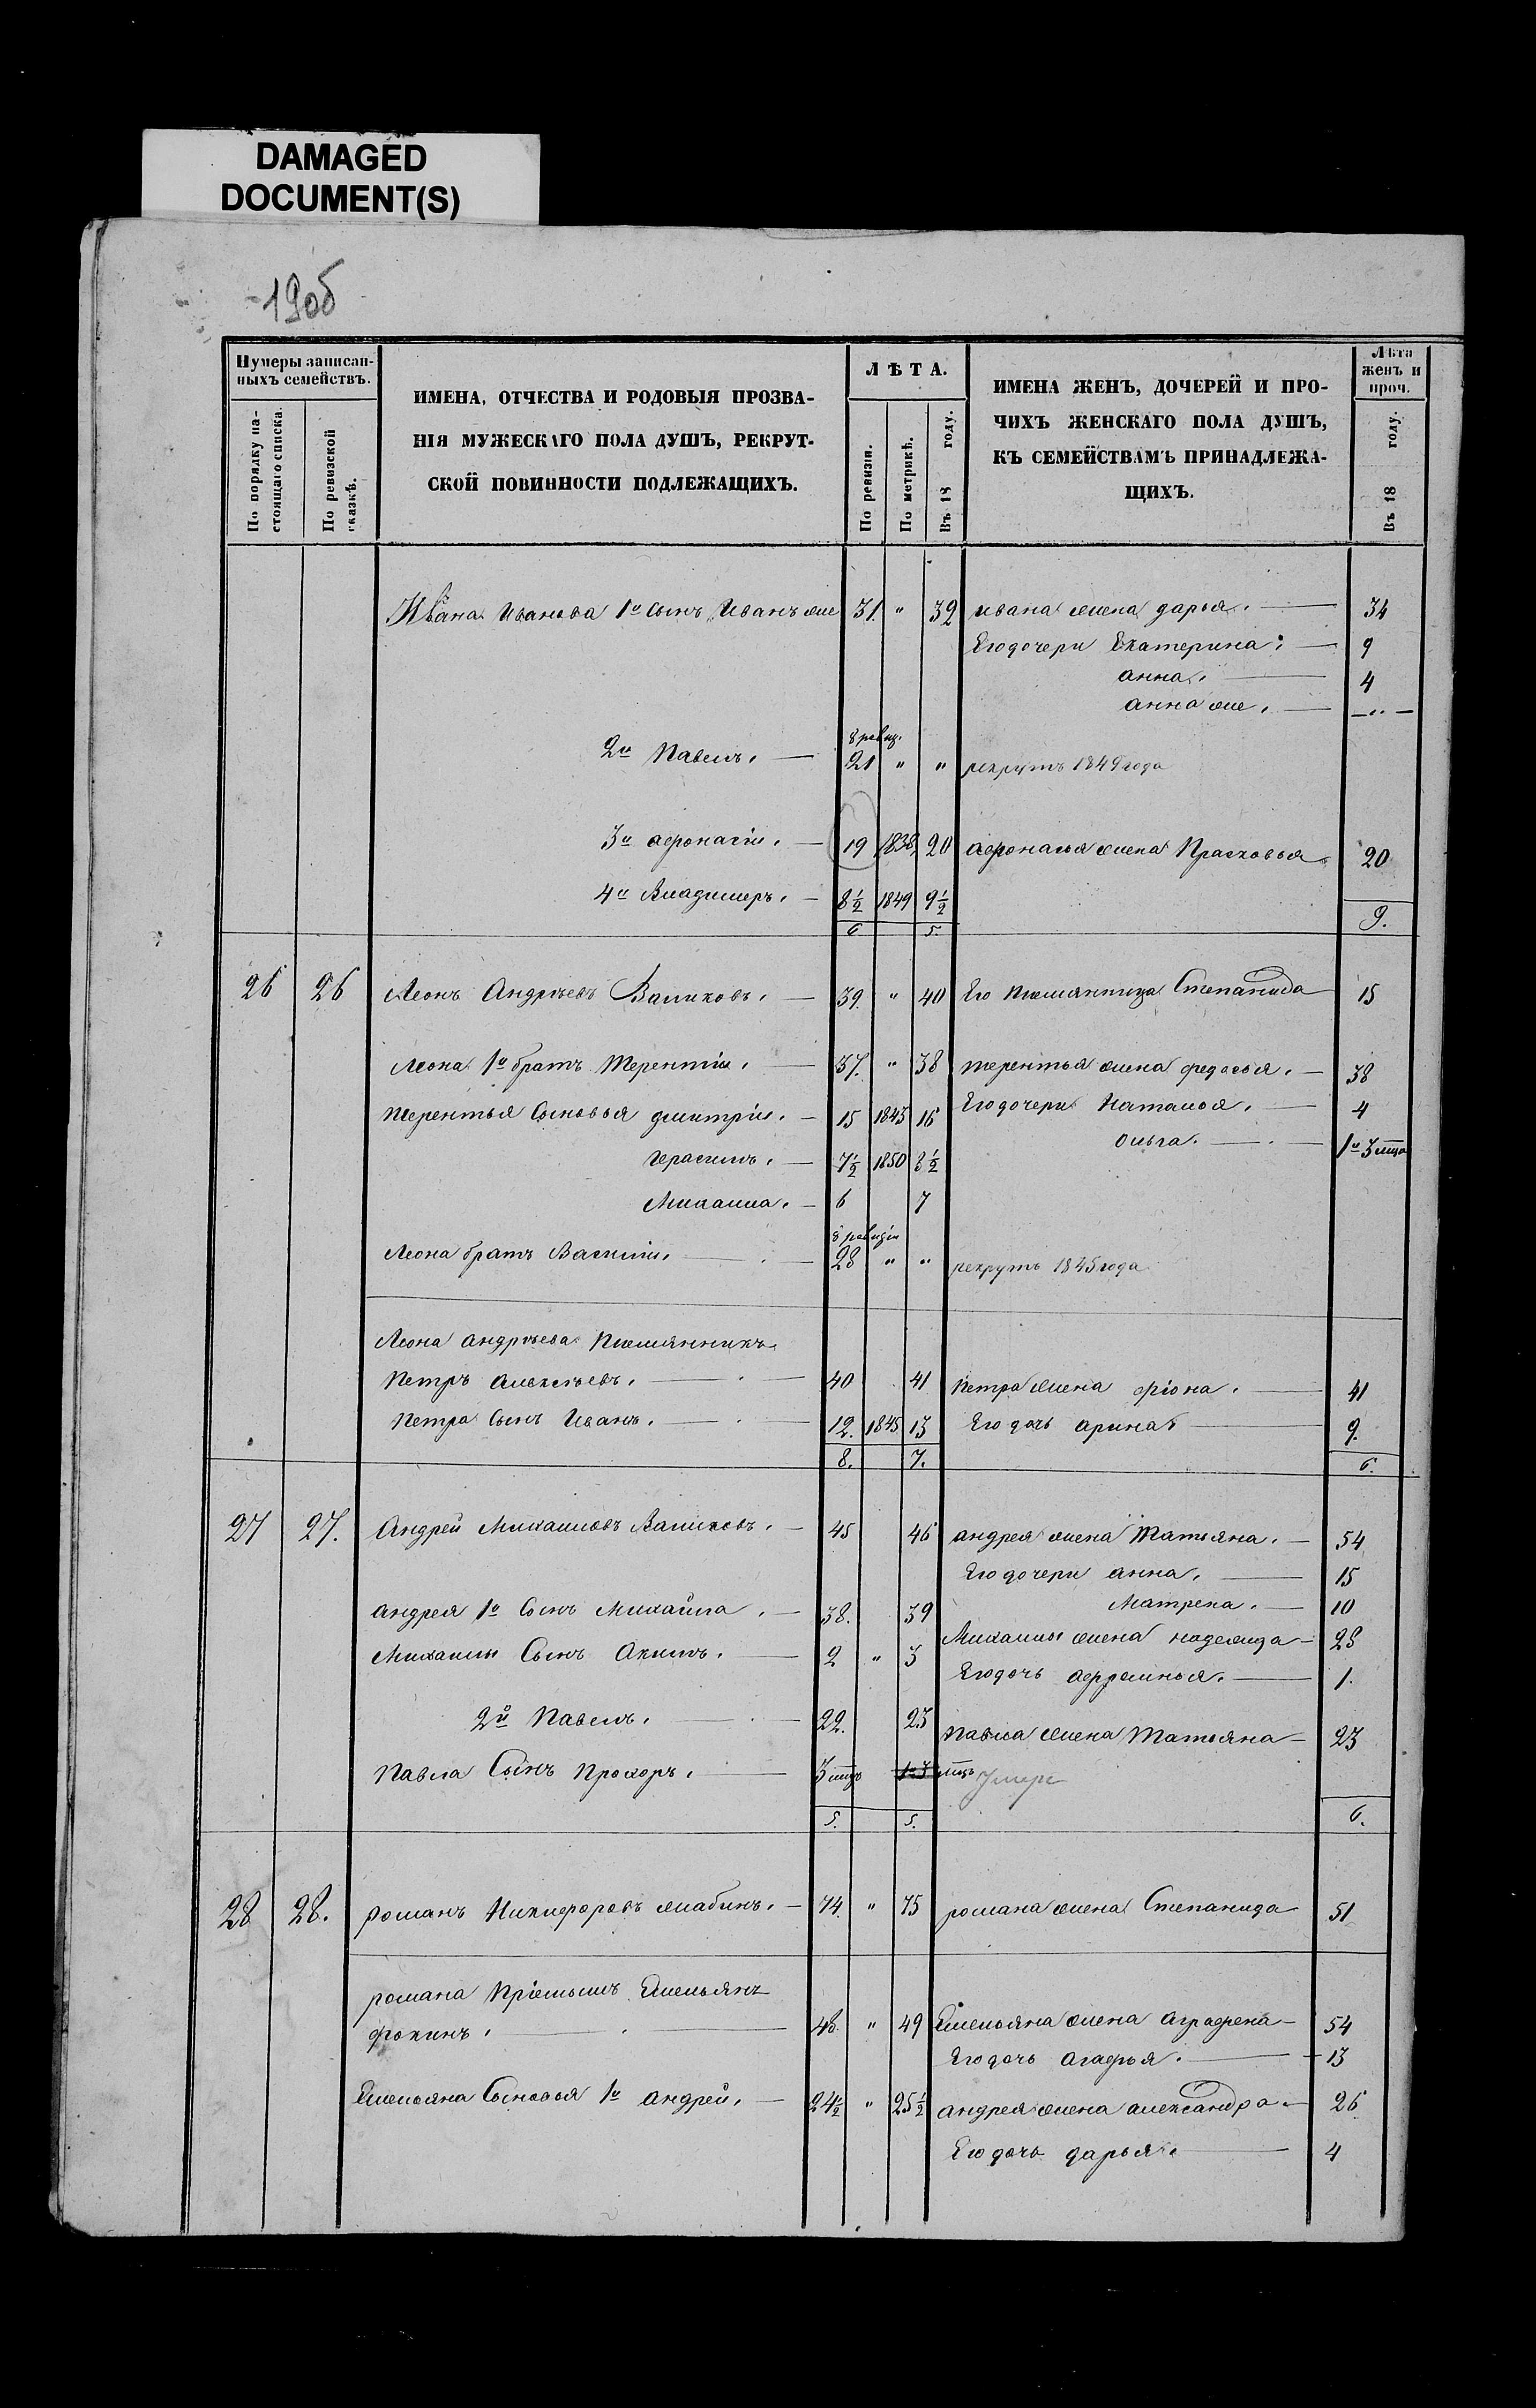 DAMAGED
DOCUMENT(S)
190б
Нумеры записан-
ныхъ семействъ.
По порядку на-
стоящаго списка.
По ревизской
сказкѣ.
ИМЕНА, ОТЧЕСТВА И РОДОВЫЯ ПРОЗВА-
НІЯ МУЖЕСКАГО ПОЛА ДУШЪ, РЕКРУТ-
СКОЙ ПОВИННОСТИ ПОДЛЕЖАЩИХЪ.
ЛѢТА.
По ревизіи.
По метрикѣ.
Въ 18 году.
ИМЕНА ЖЕНЪ, ДОЧЕРЕЙ И ПРО-
ЧИХЪ ЖЕНСКАГО ПОЛА ДУШЪ,
КЪ СЕМЕЙСТВАМЪ ПРИНАДЛЕЖА-
ЩИХЪ.
Лѣта
женъ и
проч.
Въ 18 году.
Ивана Иванова 1й Сынъ Иванъ же 31. " 39 ивана жена дарья. 34
Его дочери Екатерина: 9
анна. 4
анна же. — " —
8 ревиз.
2й Павелъ. 21 " " рекрутъ 1849 года
3й афонасiй. 19 1838 20 афонасья жена Прасковья 20
4й Владимеръ. 8½ 1849 9½
6 5. 9.
26 26 Леонъ Андрѣевъ Валиковъ. 39. " 40 Его племянница Степанида 15
Леона 1й братъ Терентiй. 37. " 38 терентья жена федосья. 38
терентья Сыновья дмитрiй. 15 1843 16 Его дочери Наталья. 4
ольга. 1го 3 мца
герасимъ. 7½ 1850 8½
Михаила. 6 7
8 ревизiи
Леона братъ Василiй. 28 " " рекрутъ 1845 года
Леона андрѣева племянникъ
Петръ алексѣевъ. 40 41 Петра жена фiона. 41
Петра Сынъ Иванъ. 12. 1845 13 Его дочь арина 9.
8. 7. 6.
27 27. Андрей Михаиловъ Валиковъ. 45 46 андрея жена Татьяна. 54
Его дочери анна. 15
Матрена. 10
андрея 1й Сынъ Михайла. 38. 39
Михаилы жена надежда 28
Михаилы Сынъ Акимъ. 2 " 3
Его дочь 1.
2й Павелъ. 22. 23 Павла жена Татьяна 23
Павла Сынъ Прохоръ. 3 мцъ умеръ
5. 5. 6.
28 28. романъ Никифоровъ 74. " 75 романа жена Степанида 51
романа прiемышъ Емельянъ
фокинъ. 48. " 49 Емельяна жена аграфена 54
Его дочь агафья. 13
Емельяна Сыновья 1й андрей. 24½ " 25½ андрея жена александра 26
Его дочь дарья. 4